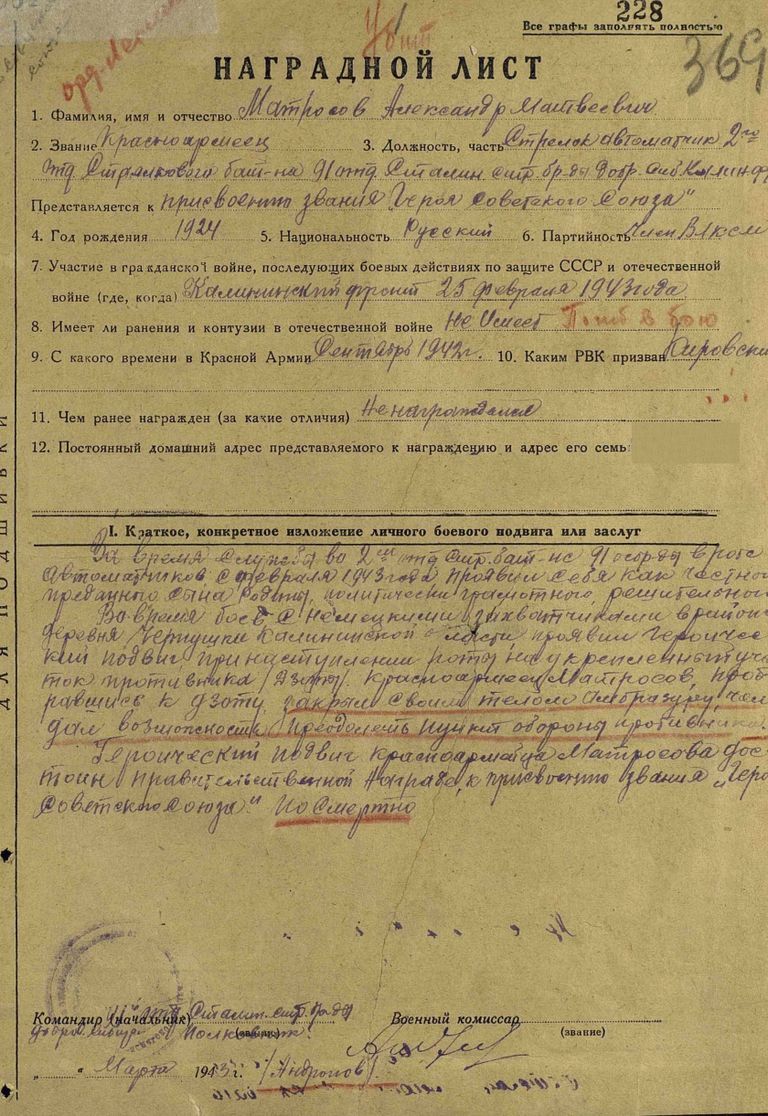 228
Все графы заполнять полностью
Убит
369
орд. Ленина
НАГРАДНОЙ ЛИСТ
1. Фамилия, имя и отчество Матросов Александр Матвеевич
2. Звание Красноармеец 3. Должность, часть Стрелок автоматчик 2го
отд Стрелкового бат-на 91 отд Сталин. стр. бр-ды добр. сиб Калин фр
Представляется к присвоению звания "Героя Советского Союза"
4. Год рождения 1924 5. Национальность Русский 6. Партийность Член ВЛКСМ
7. Участие в гражданской войне, последующих боевых действиях по защите СССР и отечественной
войне (где, когда) Калининский фронт 25 февраля 1943 года
8. Имеет ли ранения и контузии в отечественной войне Не имеет Погиб в бою
9. С какого времени в Красной Армии Сентябрь 1942 г. 10. Каким РВК призван Кировски
11. Чем ранее награжден (за какие отличия) Не награждался
12. Постоянный домашний адрес представляемого к награждению и адрес его семь
I. Краткое, конкретное изложение личного боевого подвига или заслуг
За время службы во 2ом отд стр. бат-не 91 осбр-ды в роте
автоматчиков с февраля 1943 года проявил себя как честного
преданного сына Родины, политически грамотного, решительного
Во время боев с немецкими захватчиками в районе
деревня Чернушки Калининской области проявил героичес
кий подвиг при наступлении роты на укрепленный учас
ток противника /Дзоты/. Красноармеец Матросов, проб
равшись к дзоту закрыл своим телом амбразуру, чем
дал возможность преодолеть пункт обороны противника.
Героический подвиг красноармейца Матросова дос
тоин правительственной награде, к присвоению звания "Геро
Советского Союза" Посмертно
Командир (начальник) 91 отд Сталин. стр. бр-ды
добров. сибиряк Полковник (звание)
Военный комиссар
(звание)
" " Марта 1943 г. /Андронов/
ДЛЯ ПОДШИВКИ